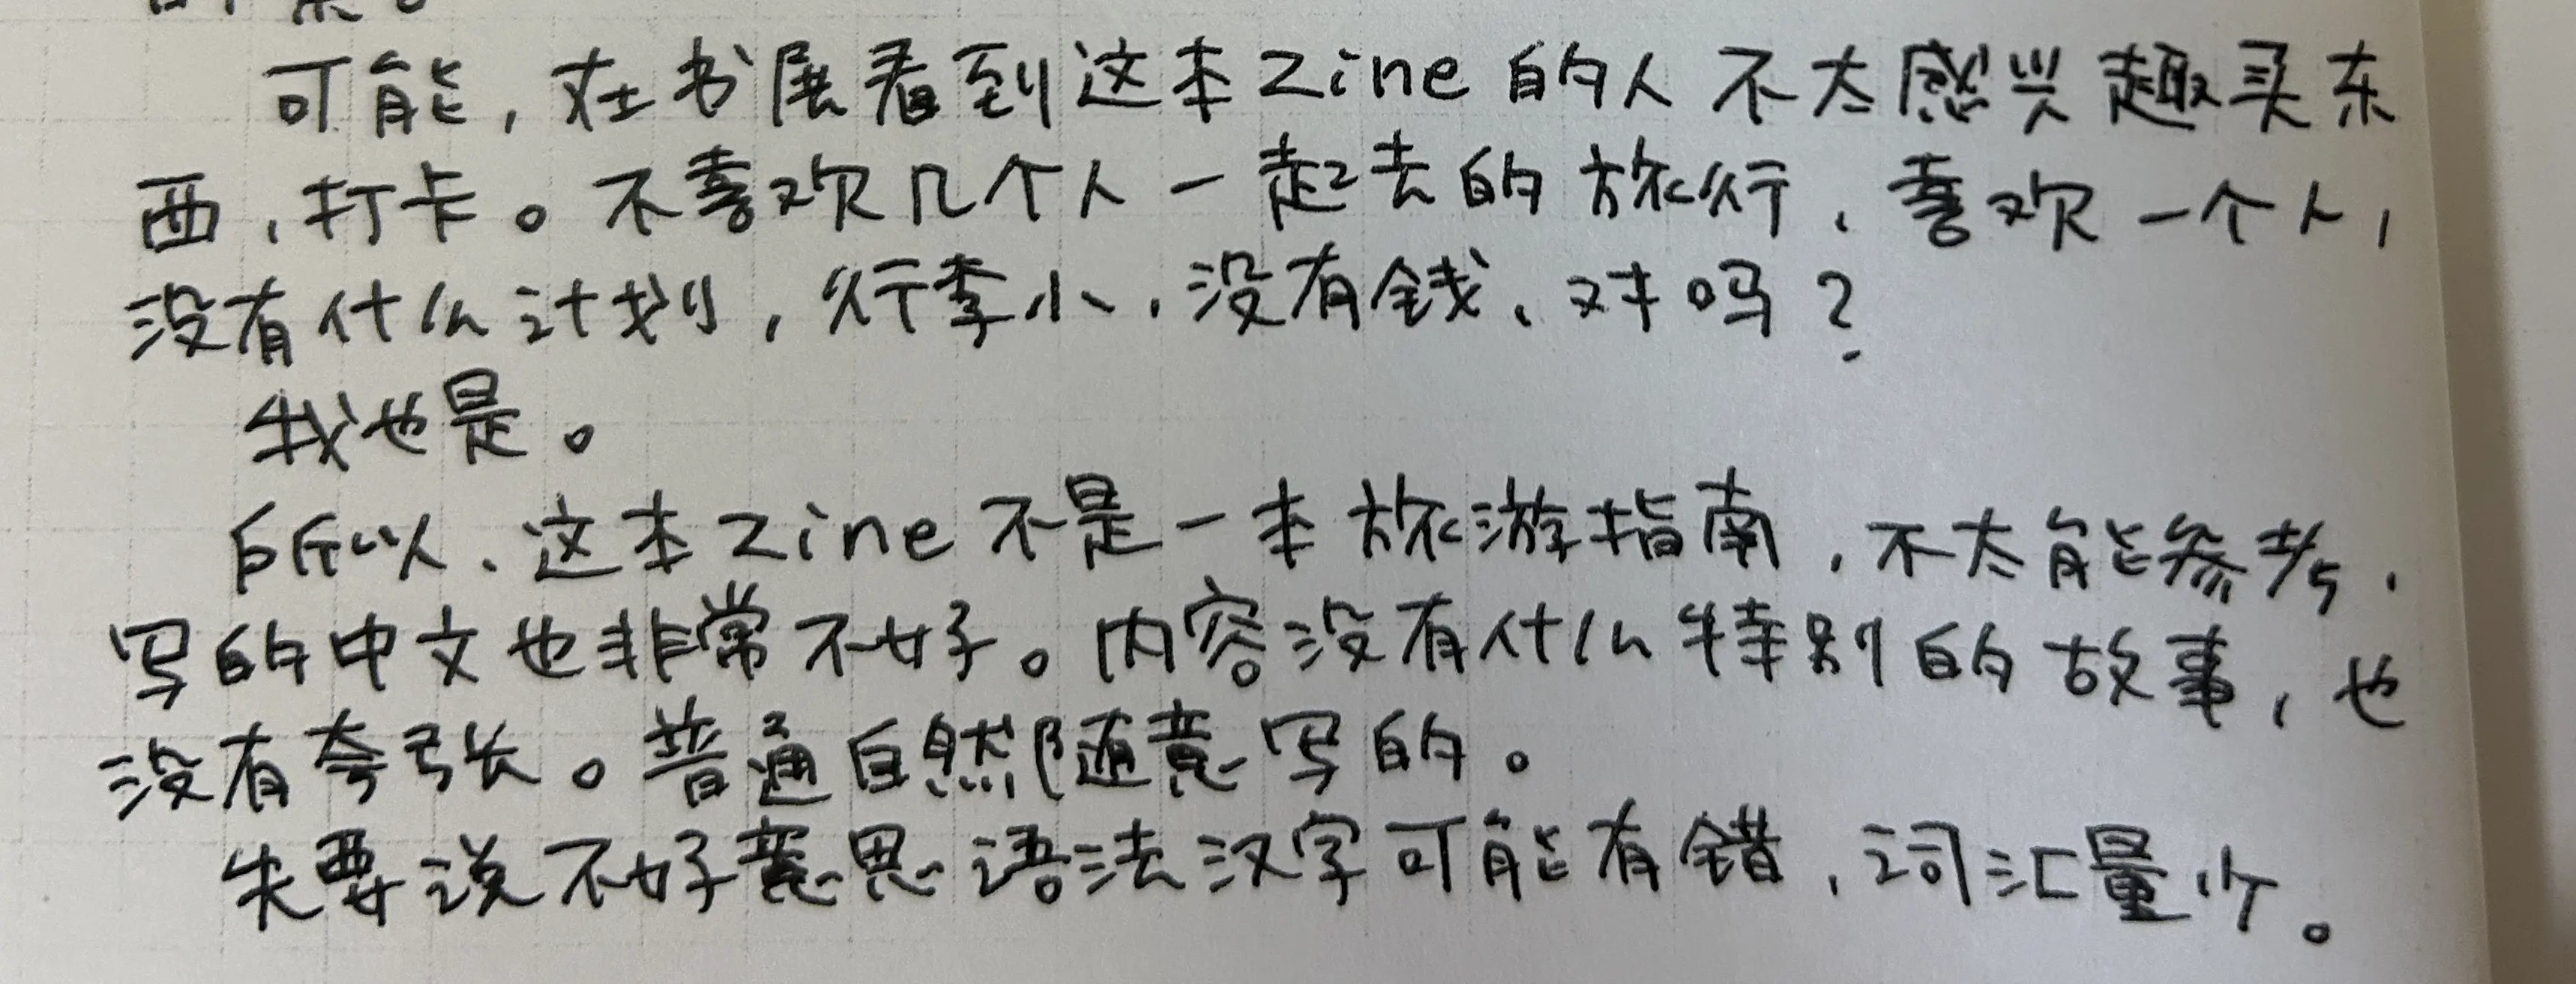 可能，在书展看到这本zine的人不太感兴趣买东
西，打卡。不喜欢几个人一起去的旅行，喜欢一个人，
没有什么计划，行李小，没有钱、对吗？
我也是。
所以、这本zine不是一本旅游指南，不太能参考，
写的中文也非常不好。内容没有什么特别的故事，也
没有夸张。普通自然随意写的。
先要说不好意思语法汉字可能有错，词汇量少。